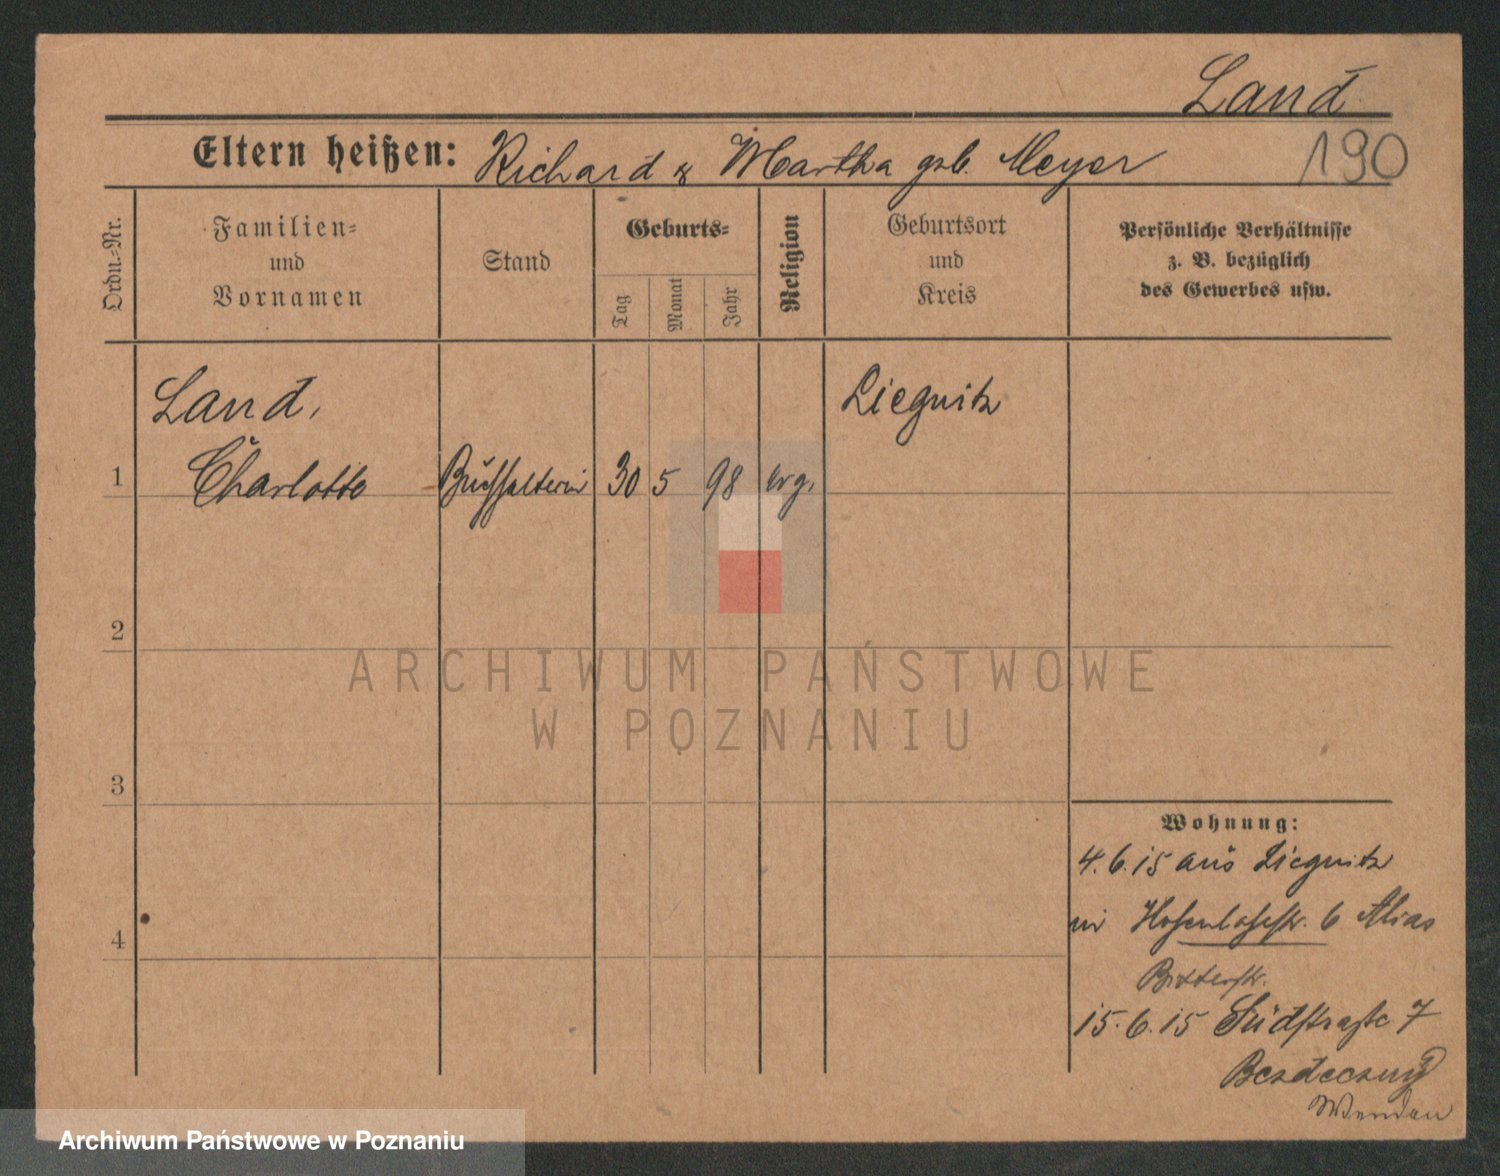 Land
Eltern heißen: Richard & Martha geb. Meyer
190
Ordn.-Nr.
Familien-
und
Vornamen
Stand
Geburts-
Tag
Monat
Jahr
Religion
Geburtsort
und
Kreis
Persönliche Verhältnisse
z. B. bezüglich
des Gewerbes usw.
Land,
Liegnitz
1
Charlotte
Buchhalterin
30
5
98
evg.
2
ARCHIWUM PAŃSTWOWE
W POZNANIU
3
Wohnung:
4.6.15 aus Liegnitz
in Hohenlohestr. 6
4
Ritterstr.
15.6.15 Südstraße 7
Archiwum Państwowe w Poznaniu